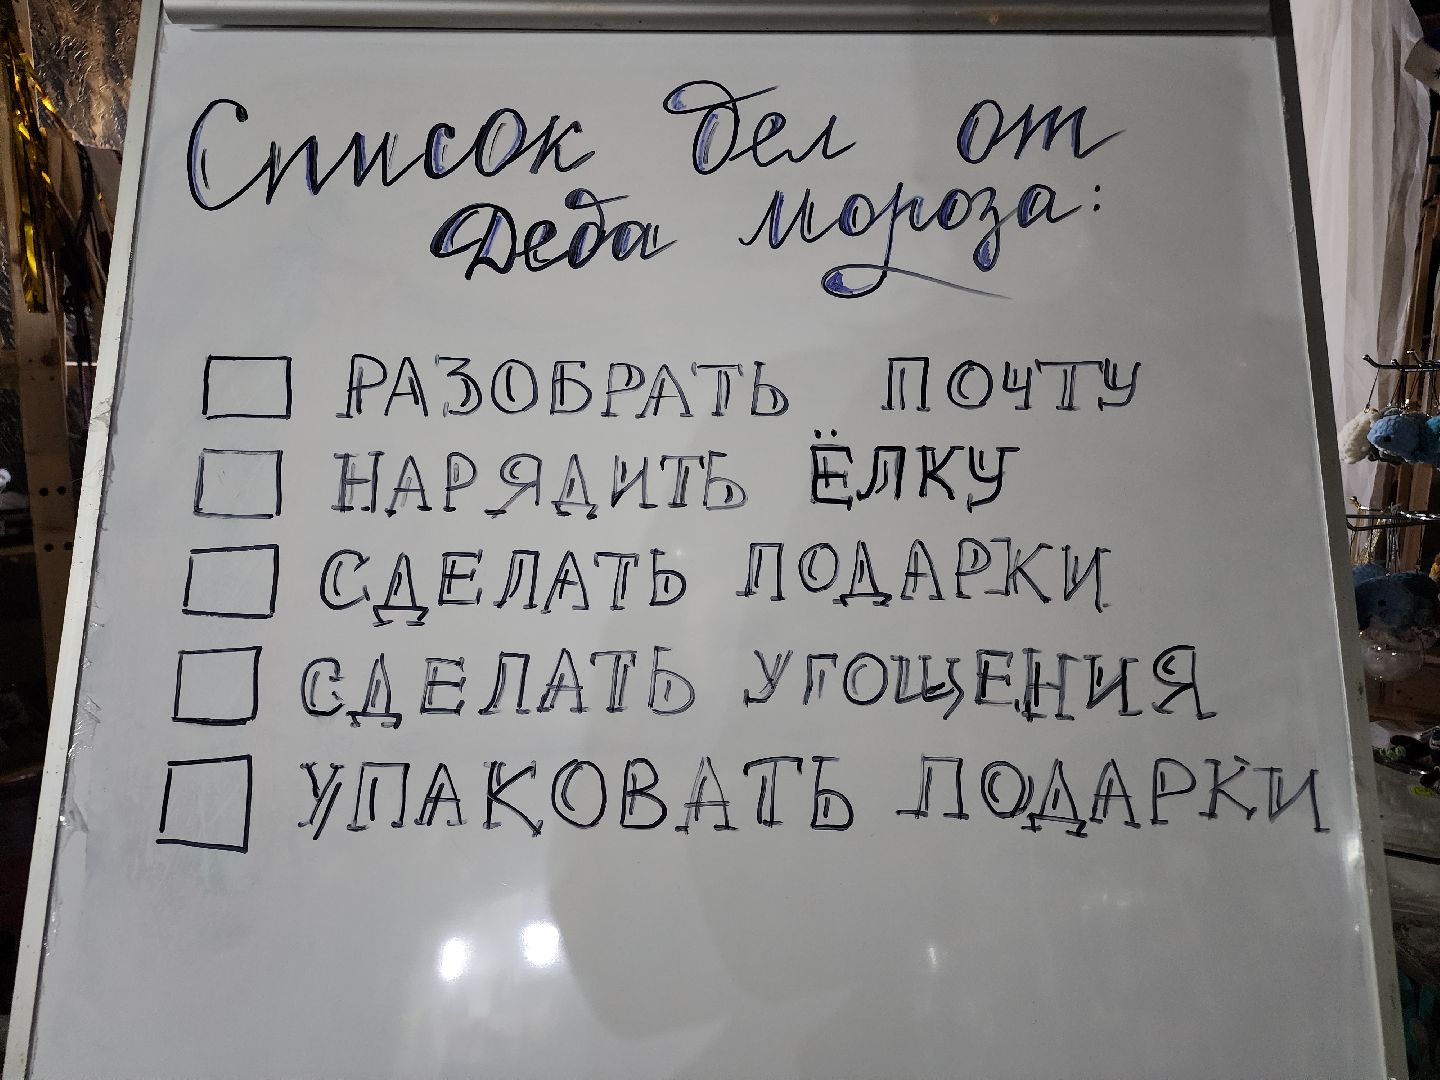 Список дел от
Деда Мороза:
РАЗОБРАТЬ ПОЧТУ
НАРЯДИТЬ ЁЛКУ
СДЕЛАТЬ ПОДАРКИ
СДЕЛАТЬ УГОЩЕНИЯ
УПАКОВАТЬ ПОДАРКИ